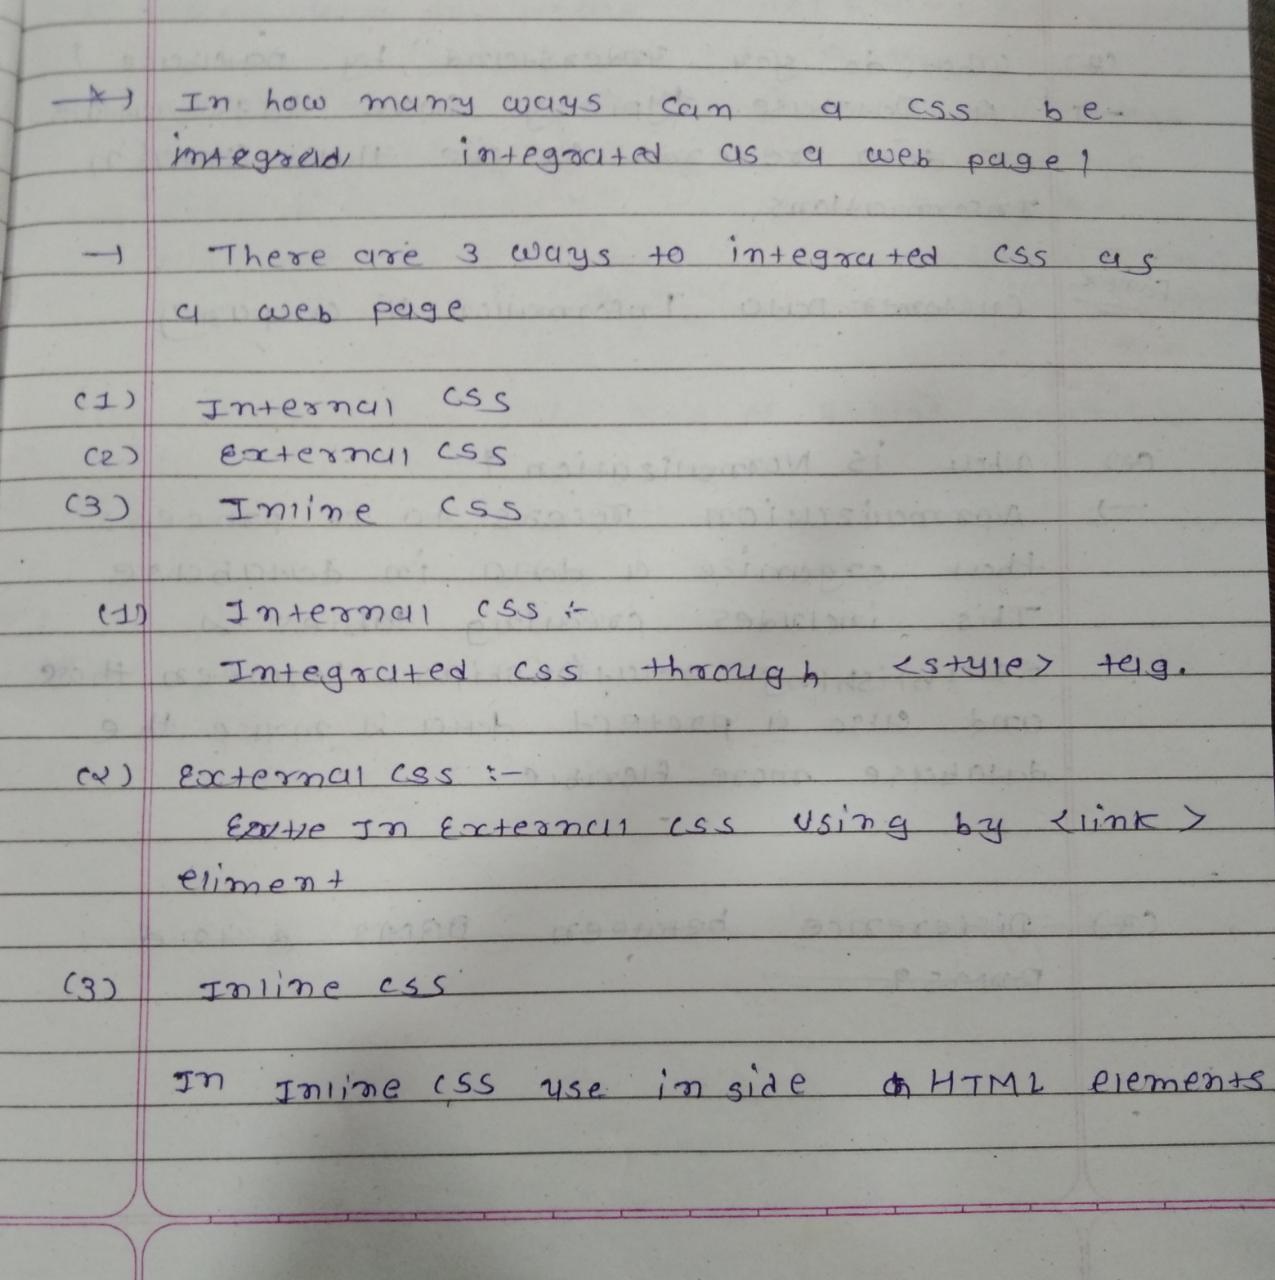 In how many ways can a css be
integrated as a web page?
There are 3 ways to integrated css as
a web page
(1) Internal css
(2) External css
(3) Inline css
(1) Internal css :-
Integrated css through <style> tag.
(2) External css :-
In External css using by <link>
eliment
(3) Inline css
In Inline css use in side HTML elements